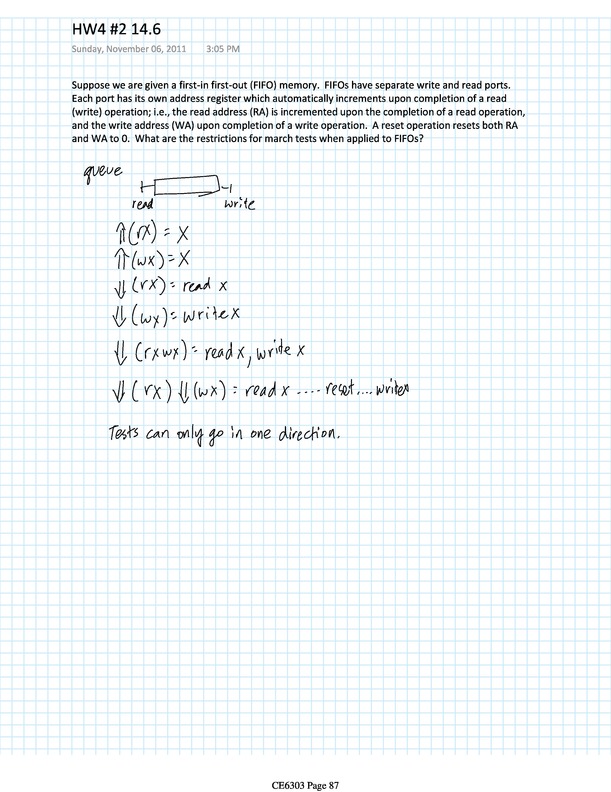 HW4 #2 14.6
Sunday, November 06, 2011 3:05 PM
Suppose we are given a first-in first-out (FIFO) memory. FIFOs have separate write and read ports.
Each port has its own address register which automatically increments upon completion of a read
(write) operation; i.e., the read address (RA) is incremented upon the completion of a read operation,
and the write address (WA) upon completion of a write operation. A reset operation resets both RA
and WA to 0. What are the restrictions for march tests when applied to FIFOs?
queue
read write
⇑(rx) = X
⇑(wx) = X
⇓(rx) = read x
⇓(wx) = write x
⇓(rxwx) = read x, write x
⇓(rx) ⇓(wx) = read x .... reset .... writex
Tests can only go in one direction.
CE6303 Page 87